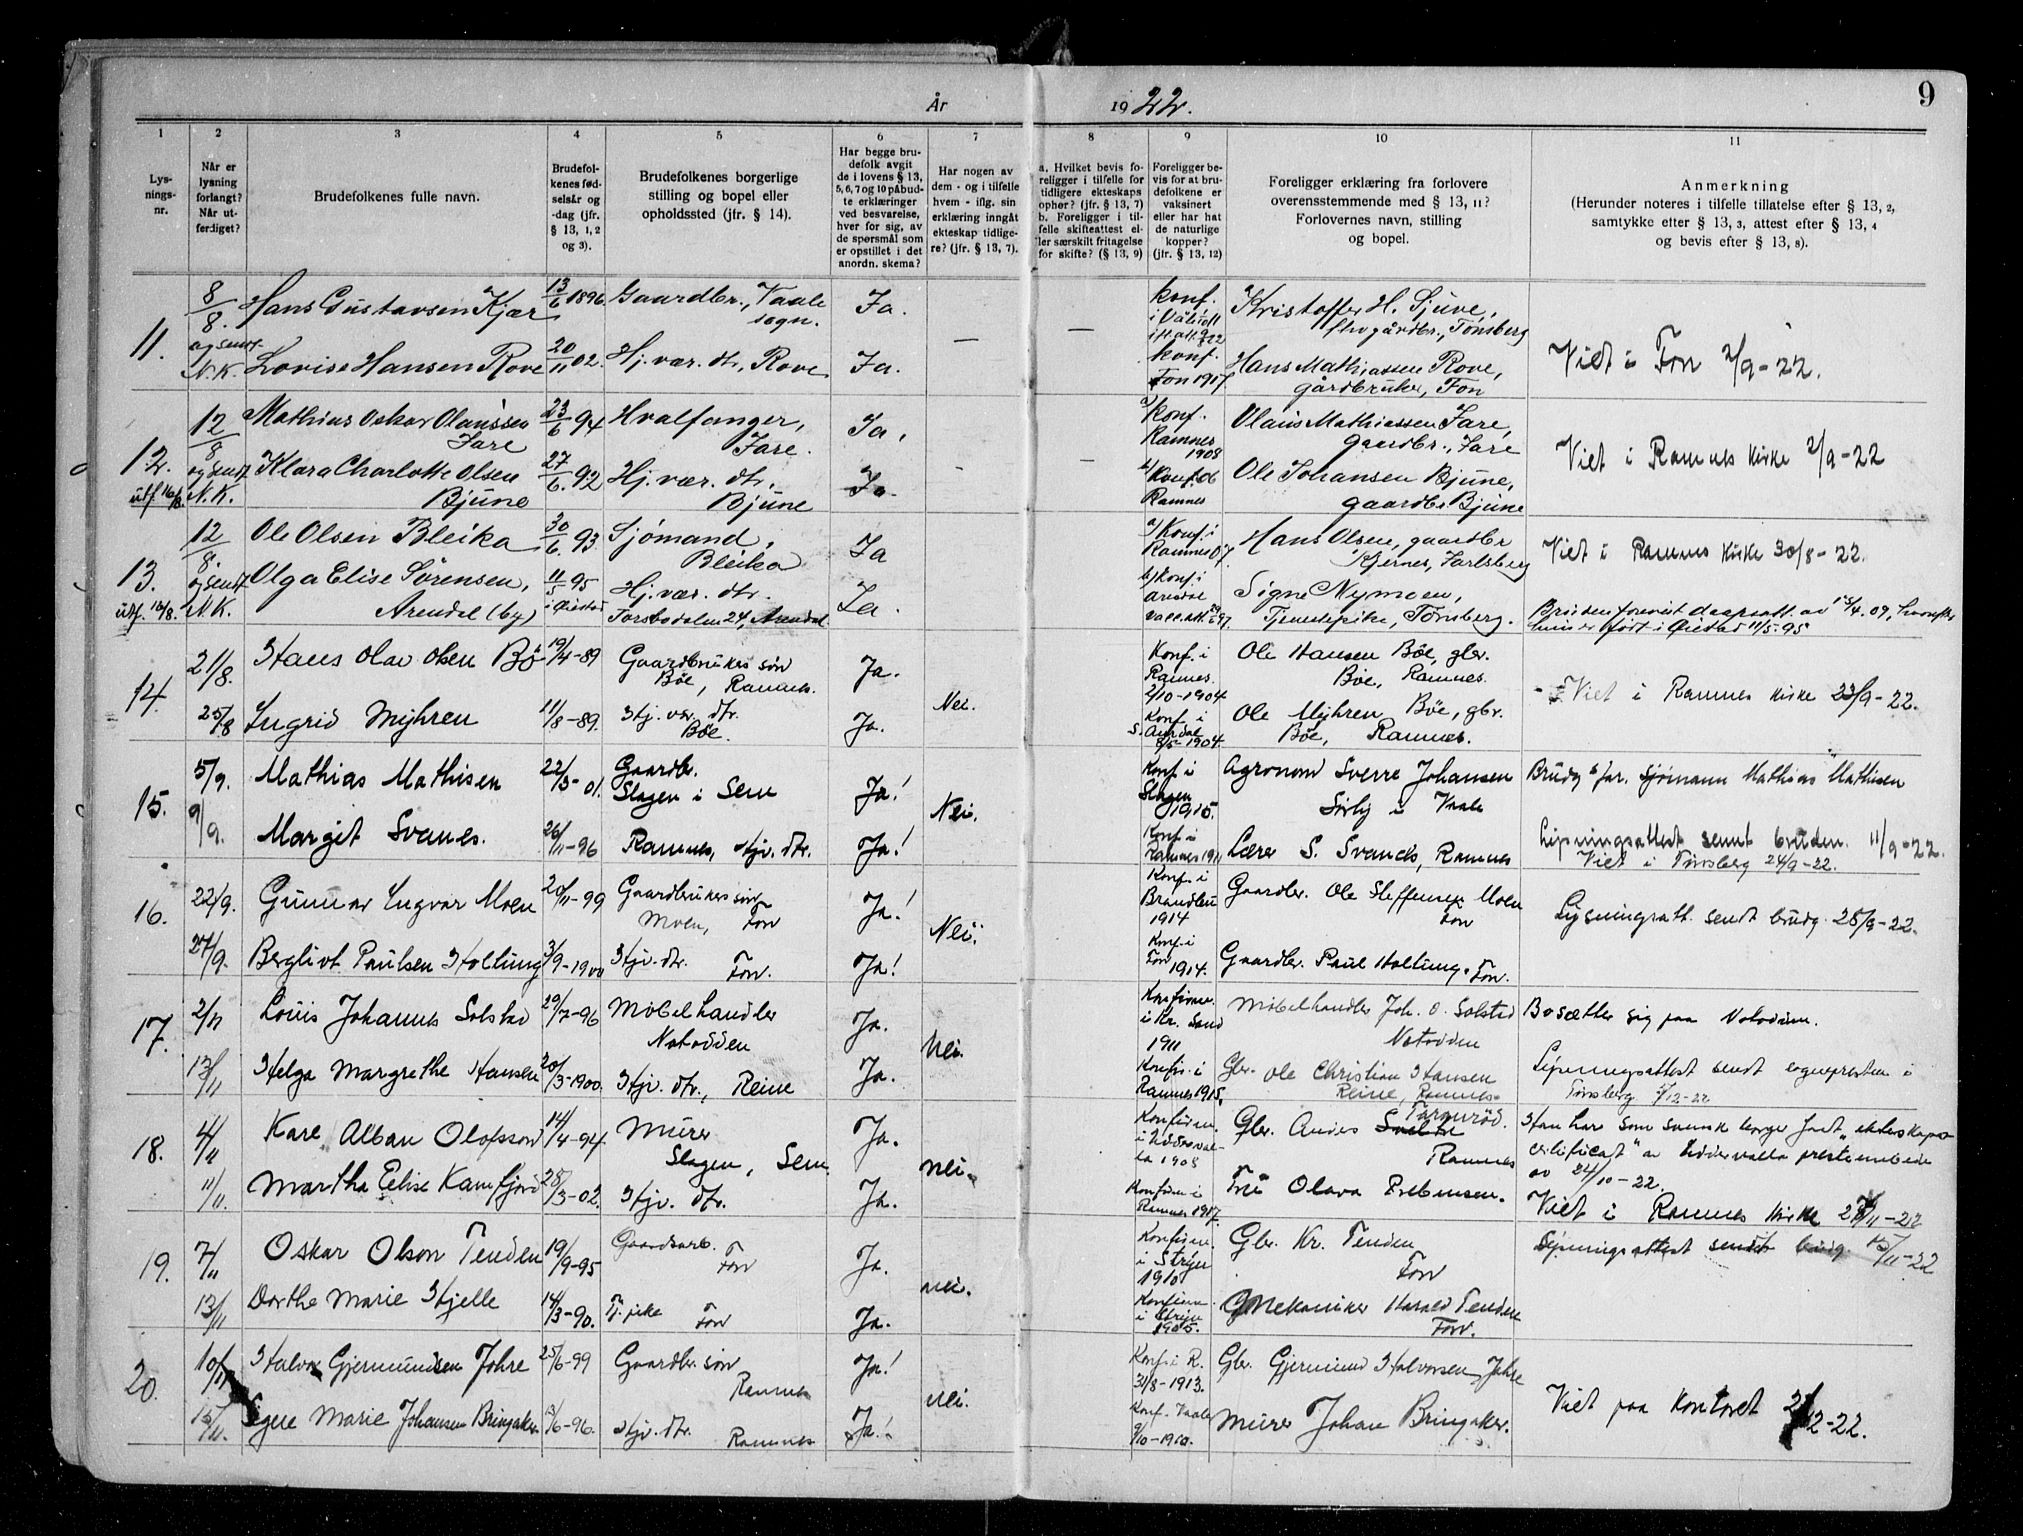 År
1922.
9
1
2
3
4
5
6
7
8
9
10
11
Lys-
nings-
nr.
Når er
lysning
forlangt?
Når ut-
ferdiget?
Brudefolkenes fulle navn.
Brudefol-
kenes fød-
selsår og
-dag (jfr.
§ 13, 1, 2
og 3).
Brudefolkenes borgerlige
stilling og bopel eller
opholdssted (jfr. § 14).
Har begge bru-
defolk avgit
de i lovens § 13,
5, 6, 7 og 10 påbud-
te erklæringer
ved besvarelse,
hver for sig, av
de spørsmål som
er opstillet i det
anordn. skema?
Har nogen av
dem - og i tilfelle
hvem - iflg. sin
erklæring inngått
ekteskap tidlige-
re? (jfr. § 13, 7).
a. Hvilket bevis fo-
religger i tilfelle for
tidligere ekteskaps
ophør? (jfr. § 13, 7)
b. Foreligger i til-
felle skifteattest el-
ler særskilt fritagelse
for skifte? (§ 13, 9)
Foreligger be-
vis for at bru-
defolkene er
vaksinert
eller har hat
de naturlige
kopper?
(jfr. § 13, 12)
Foreligger erklæring fra forlovere
overensstemmende med § 13, 11?
Forlovernes navn, stilling
og bopel.
Anmerkning
(Herunder noteres i tilfelle tillatelse efter § 13, 2,
samtykke efter § 13, 3, attest efter § 13, 4
og bevis efter § 13, 8).
11.
8/8. Hans Gustavsen Kjær 13/6 1896 Gaardbr., Vaale
sogn. Ja. konf.
Kristoffer H. Sjuve,
gårdbr., Tønsberg
og sendt
N.K. Lovise Hansen Rove 20/11 02. Hj. vær. dtr., Rove Ja. — — konf.
Fon 1917 Hans Mathiassen Rove,
gårdbruker, Fon
Viet i Fon 2/9-22.
12.
utf 16/8.
12/8 Mathias Oskar Olaussen
Fare 23/6 94 Hvalfanger,
Fare. Ja. a/ konf.
Ramnes
1908 Olaus Mathiassen Fare,
gaardbr., Fare
og sendt
N.K. Klara Charlotte Olsen
Bjune 27/6. 92 Hj. vær. dtr.
Bjune Ja. b/ Konf. 06
Ramnes Ole Johansen Bjune,
gaardbr. Bjune
Viet i Ramnes kirke 2/9-22
13.
utf. 16/8.
12/8. Ole Olsen Bleika 30/6. 93 Sjømand,
Bleika Ja a/ Konf. i
Ramnes 07. Hans Olsen, gaardbr
Kjernes, Jarlsberg
Viet i Ramnes kirke 30/8-22.
og sendt
N.K. Olga Elise Sørensen,
Arendal (by) 11/5 95
i Øiestad Hj. vær. dtr.
24, Arendal Ja. b/ Konf. i
Signe Nymoen,
Tjenestepike, Tønsberg.
Bruden forevist daapsatt. av
hun er født i Øiestad 11/5-95
14.
21/8. Hans Olav Olsen Bö 19/4-89 Gaardbrukes søn
Böe, Ramnes. Ja. Konf. i
Ramnes.
2/10-1904 Ole Hansen Böe, gbr.
Böe, Ramnes.
25/8 Ingrid Myhren 11/8-89. Hj. vær. dtr.
Böe. Ja. Nei. Konf. i
S. Aurdal
1904. Ole Myhren Böe, gbr.
Böe, Ramnes.
Viet i Ramnes kirke 23/9-22.
15.
5/9. Mathias Mathisen 22/5-01. Gaardbr.
Slagen i Sem Ja! Nei. Konf. i
Slagen
1915. Agronom Sverre Johansen
Sörby i Vaale
Brudg.s far. sjømann Mathias Mathisen
9/9. Margit Svanes. 26/11-96 Ramnes, Hjv. dtr. Ja! Konf. i
Ramnes 1911 Lærer S. Svanes, Ramnes
Lysningsattest sendt bruden. 11/9-22.
Viet i Tönsberg 24/9-22.
16.
22/9. Gunnar Ingvar Moen 20/11-99 Gaardbrukers søn
Moen, Fon Ja! Nei. Konf. i
Brandbu
1914 Gaardbr. Ole Steffensen Moen
Fon
Lysningsatt. sendt brudg. 28/9-22.
27/9. Bergliot Paulsen Holtung 3/9-1900 Hjv. dtr. Fon. Ja! Konf. i
Fon
1914. Gaardbr. Paul Holtung. Fon.
17.
2/11 Louis Johannes Solstad 29/7-96 Möbelhandler
Notodden Ja. Nei. Konfirm.
i Kr. Sand
1911 Möbelhandler Joh. O. Solstad
Notodden
Bosætter sig paa Notodden.
13/11 Helga Margrethe Hansen 20/3-1900. Hjv. dtr., Reine Ja. Konfir. i
Ramnes 1915. Gbr. Ole Christian Hansen
Reine, Ramnes
Lysningsattest sendt sognepresten i
Tönsberg 12-22
18.
4/11 Karl Alban Olofsson 14/4-94 Murer
Slagen, Sem Ja. Nei. Konfirm.
i Uddeval-
la 1908 Gbr. Anders
Ramnes
Han har som svensk borger fast „ekteskaps
certificat" av Uddevalla prestembede
av 24/10-22.
11/11. Martha Elise Kamfjord 28/3-02. Hjv. dtr. Ja. Konfirm i
Ramnes 1917. Fru Olava Prebensen.
Viet i Ramnes kirke 11-22
19.
7/11 Oskar Olson Tenden 19/9-95 Gaardsarb.
Fon Ja. nei. Konfirm.
i Stryn
1910 Gbr. Kr. Tenden
Fon
Lysningsattest sendt brudg. 15/11-22
13/11 Dorthe Marie Hjelle 14/3-90. Tj. pike Fon Ja. Konfirm.
i Stryn
1905. Mekaniker Harald Tenden
Fon.
20.
10/11 Halvor Gjermundsen Jahre 25/6-99 Gaardbr. søn
Ramnes Ja! nei. Konf. i R.
31/8-1913. Gbr. Gjermund Halvorsen Jahre
15/11. Signe Marie Johansen Bringaker 13/6-96. Hjv. dtr.
Ramnes Ja! Konf. Vaale
9/10-1910. Murer Johan Bringaker.
Viet paa Kontoret 2/12-22.